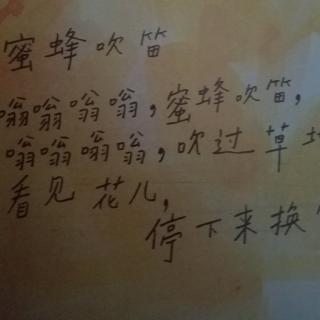 蜜蜂吹笛
嗡嗡嗡嗡,蜜蜂吹笛,
嗡嗡嗡嗡,吹过草
看见花儿,
停下来换